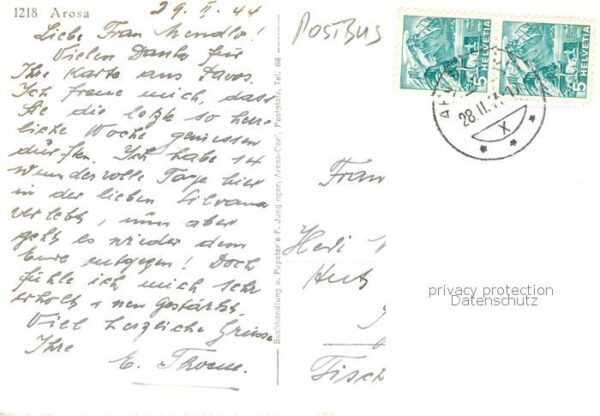 1218 Arosa
29. II. 44
Liebe Frau Mendlo!
Vielen Dank für
Ihre Karte aus Davos.
Ich freue mich, dass
Sie die letzte so herr-
liche Woche geniessen
durften. Ich habe 14
wundervolle Tage hier
in der lieben Silvana
verlebt, nun aber
geht es wieder dem
Ende entgegen! Doch
fühle ich mich sehr
erholt u neu gestärkt.
Viel herzliche Grüsse
Ihre
E. Thom
Buchhandlung u. Papeterie F. Junginger, Arosa-Dorf, Postplatz, Tel. 68
POSTBUS
5 HELVETIA
5 HELVETIA
28.II.
X
Frau
Hedi
Hut
Fisch
privacy protection
Datenschutz